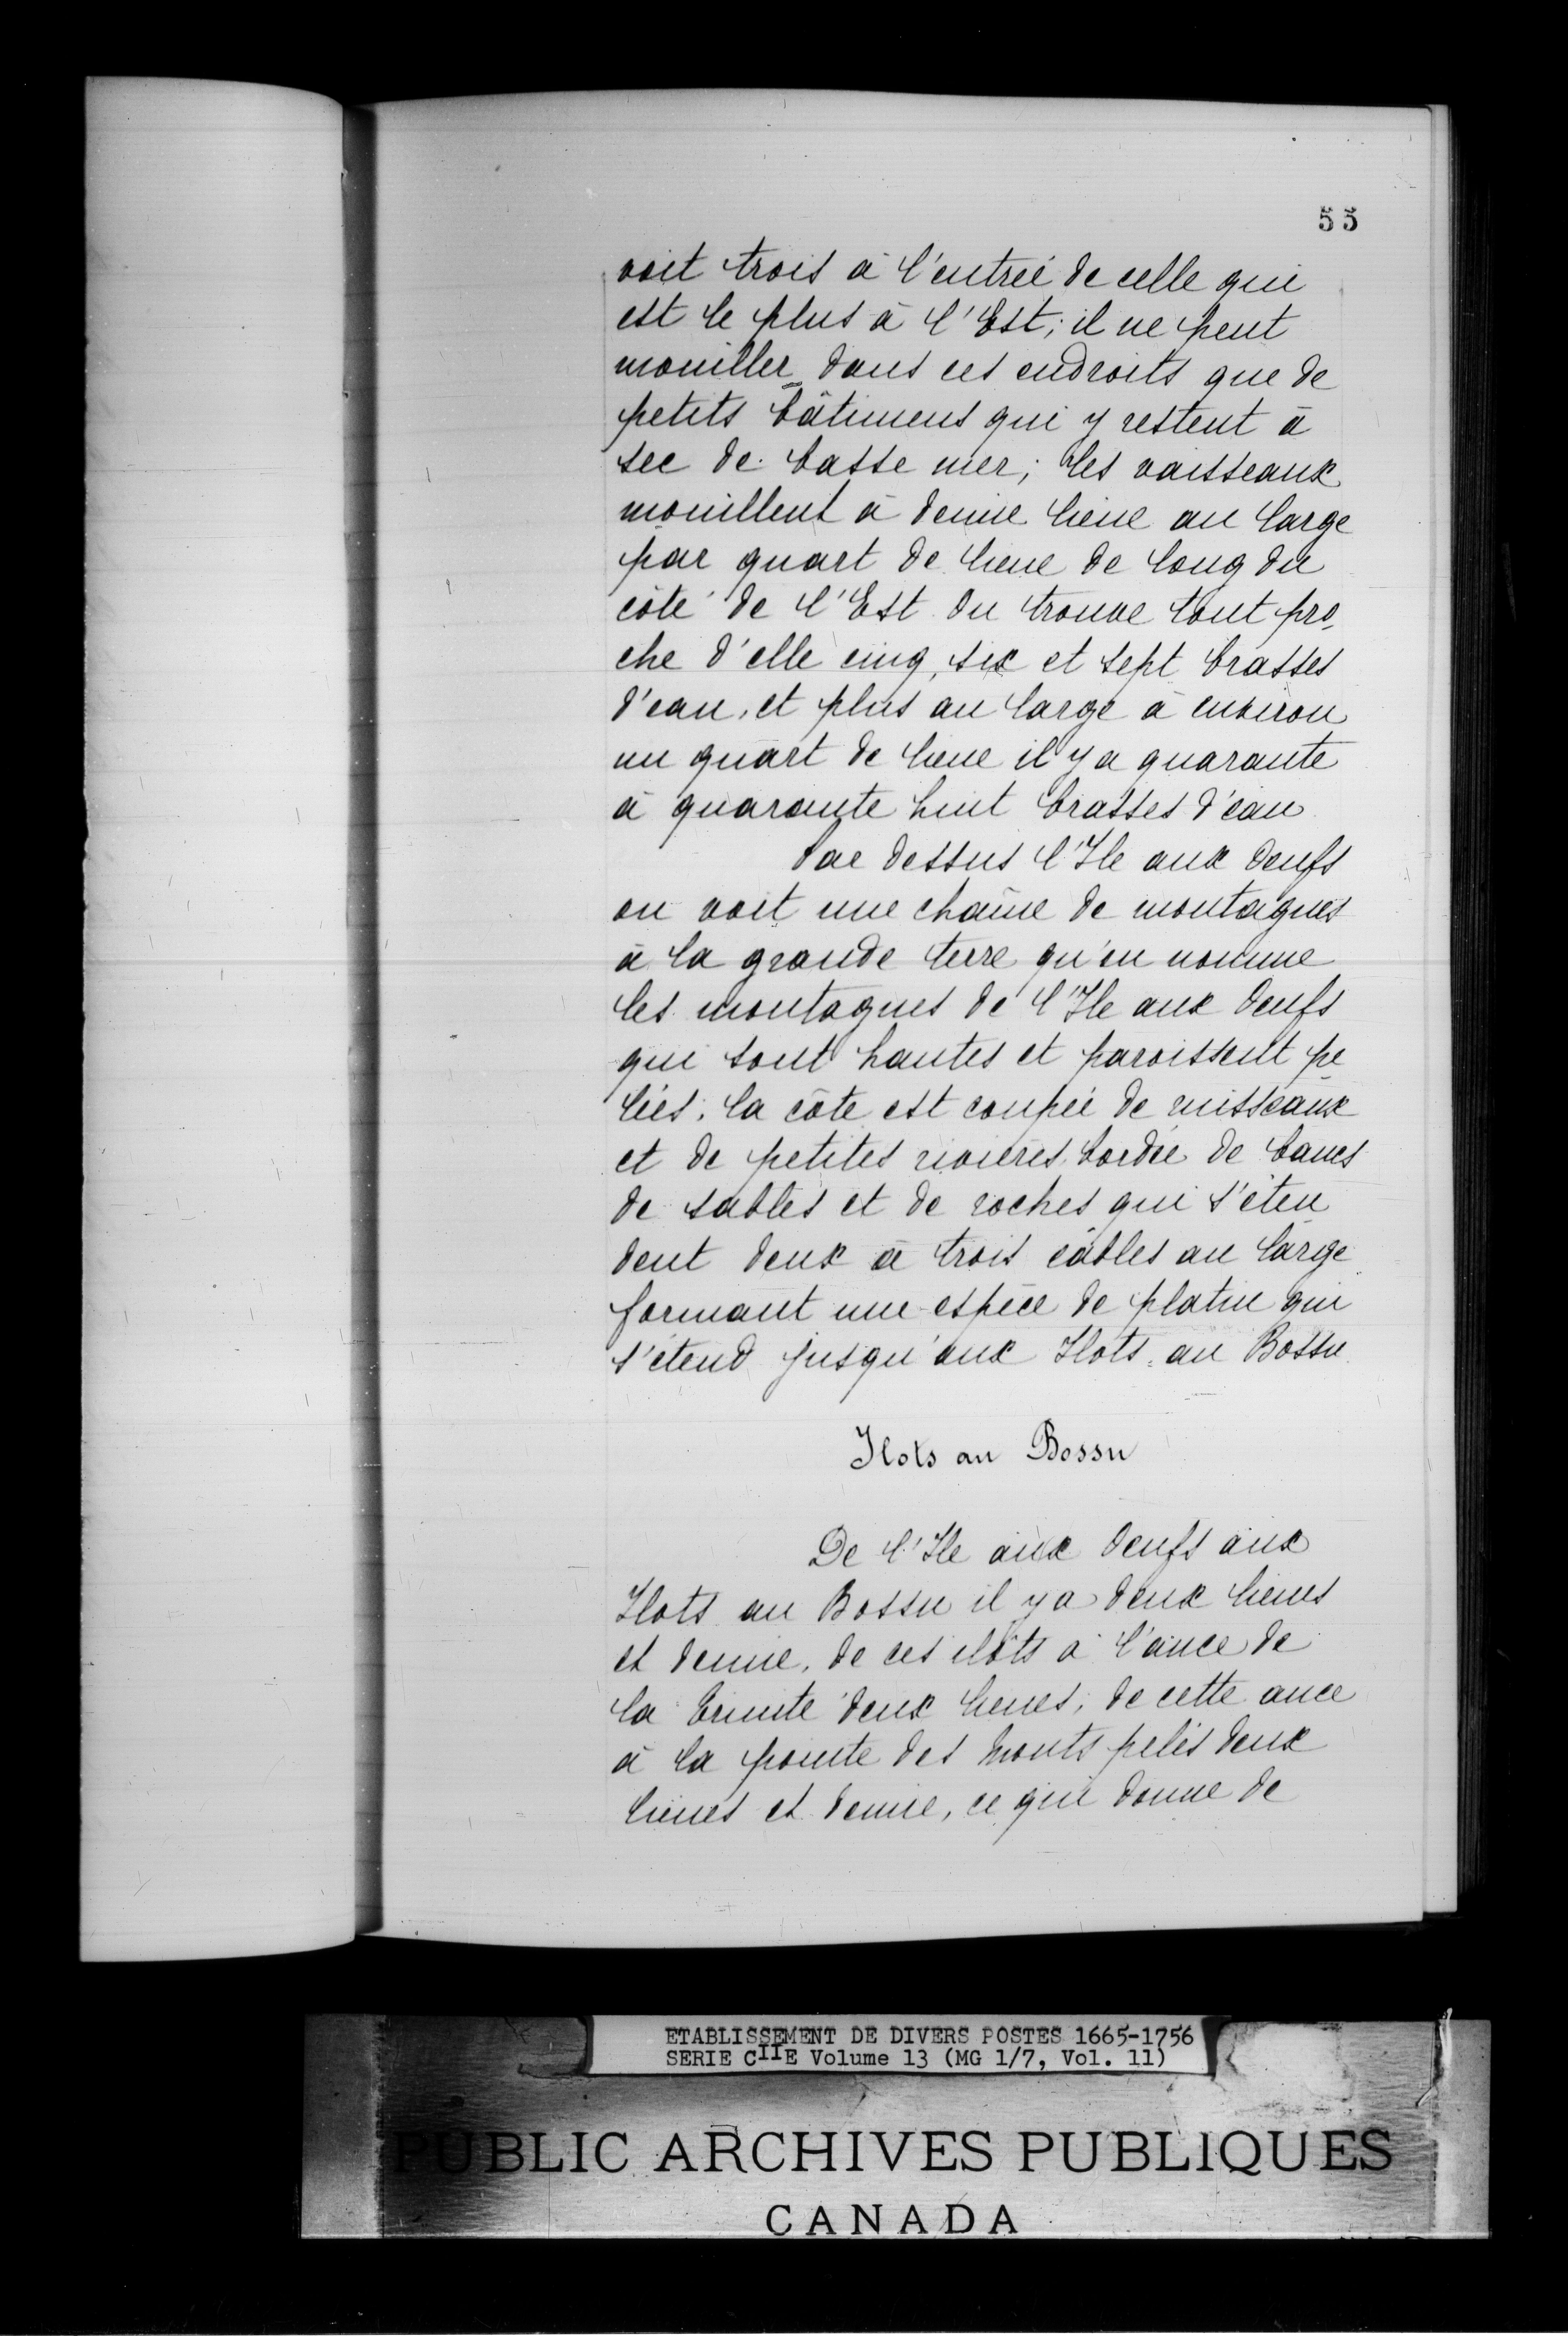 55
voit trois à l'entrée de celle qui
est le plus à l'Est; il ne peut
mouiller dans ces endroits que de
petits bâtimens qui y restent à
sec de basse mer; les vaisseaux
mouillent à demie lieue au large
par quart de lieue de long du
côté de l'Est. On trouve tout pro-
che d'elle cinq, six et sept brasses
d'eau, et plus au large à environ
un quart de lieue il y a quarante
à quarante huit brasses d'eau
Par dessus l'Ile aux Oeufs
on voit une chaîne de montagnes
à la grande terre qu'on nomme
les montagnes de l'Ile aux Oeufs
qui sont hautes et paroissent pe
lées. la côte est coupée de ruisseaux
et de petites rivières, bordée de bancs
de sables et de roches qui s'éten
dent deux à trois câbles au large
formant une espèce de platin qui
s'étend jusqu'aux Ilots au Bossu
Ilots au Bossu
De l'Ile aux Oeufs aux
Ilots au Bossu il y a deux lieues
et demie, de ces ilôts à l'ance de
la Trinité deux lieues; de cette ance
à la pointe des Monts pelés deux
lieues et demie, ce qui donne de
ETABLISSEMENT DE DIVERS POSTES 1665-1756
SERIE CIIE Volume 13 (MG 1/7, Vol. 11)
PUBLIC ARCHIVES PUBLIQUES
CANADA